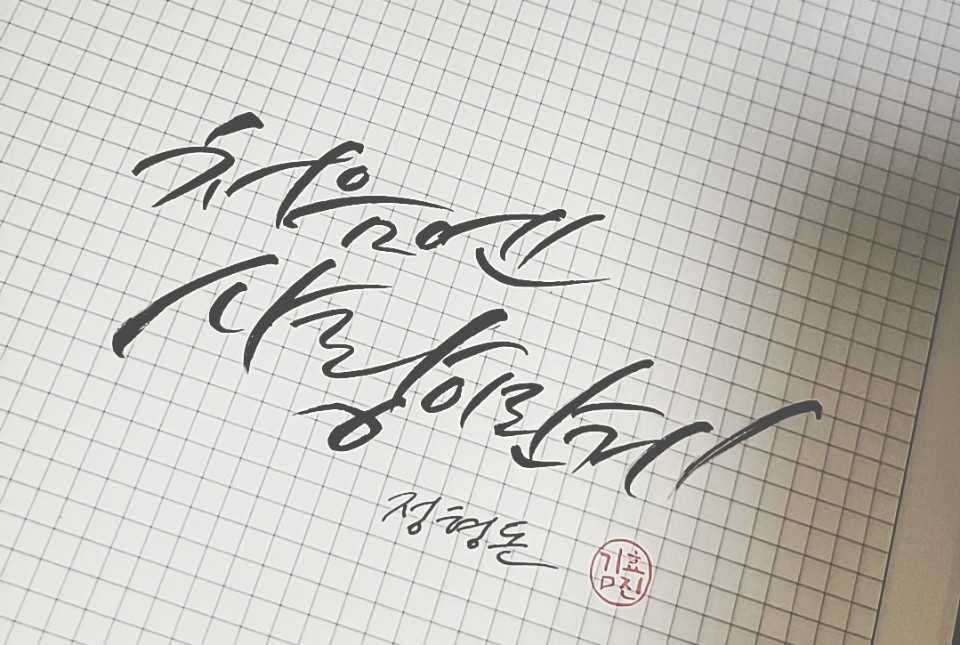 처음엔
사랑이란게
정형돈
김효진